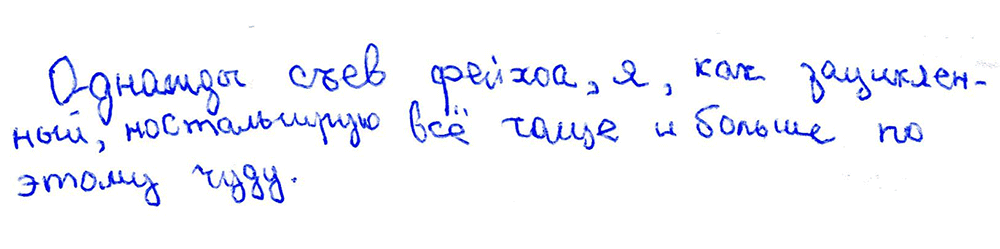 Однажды съев фейхоа, я, как зациклен-
ный, ностальгирую всё чаще и больше по
этому чуду.